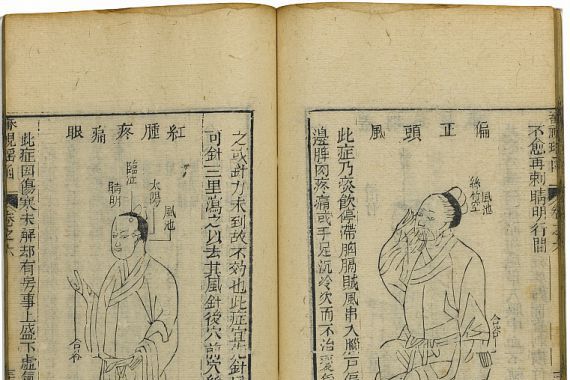 審視瑤函
卷之六
不愈再刺睛明行間
偏正頭風
風池
絲竹空
合谷
此症乃痰飲停滯胸膈賊風串入腦戶偏
邊脾肉疼痛或手足沉冷久而不治變
之或針力未到故不効也此症宜先針
可針三里 之以去其風針後穴前穴
紅腫疼痛眼
風池
太陽
臨泣
睛明
合谷
此症因傷寒未解却有房事上盛下虛氣
審視瑤函
卷之六